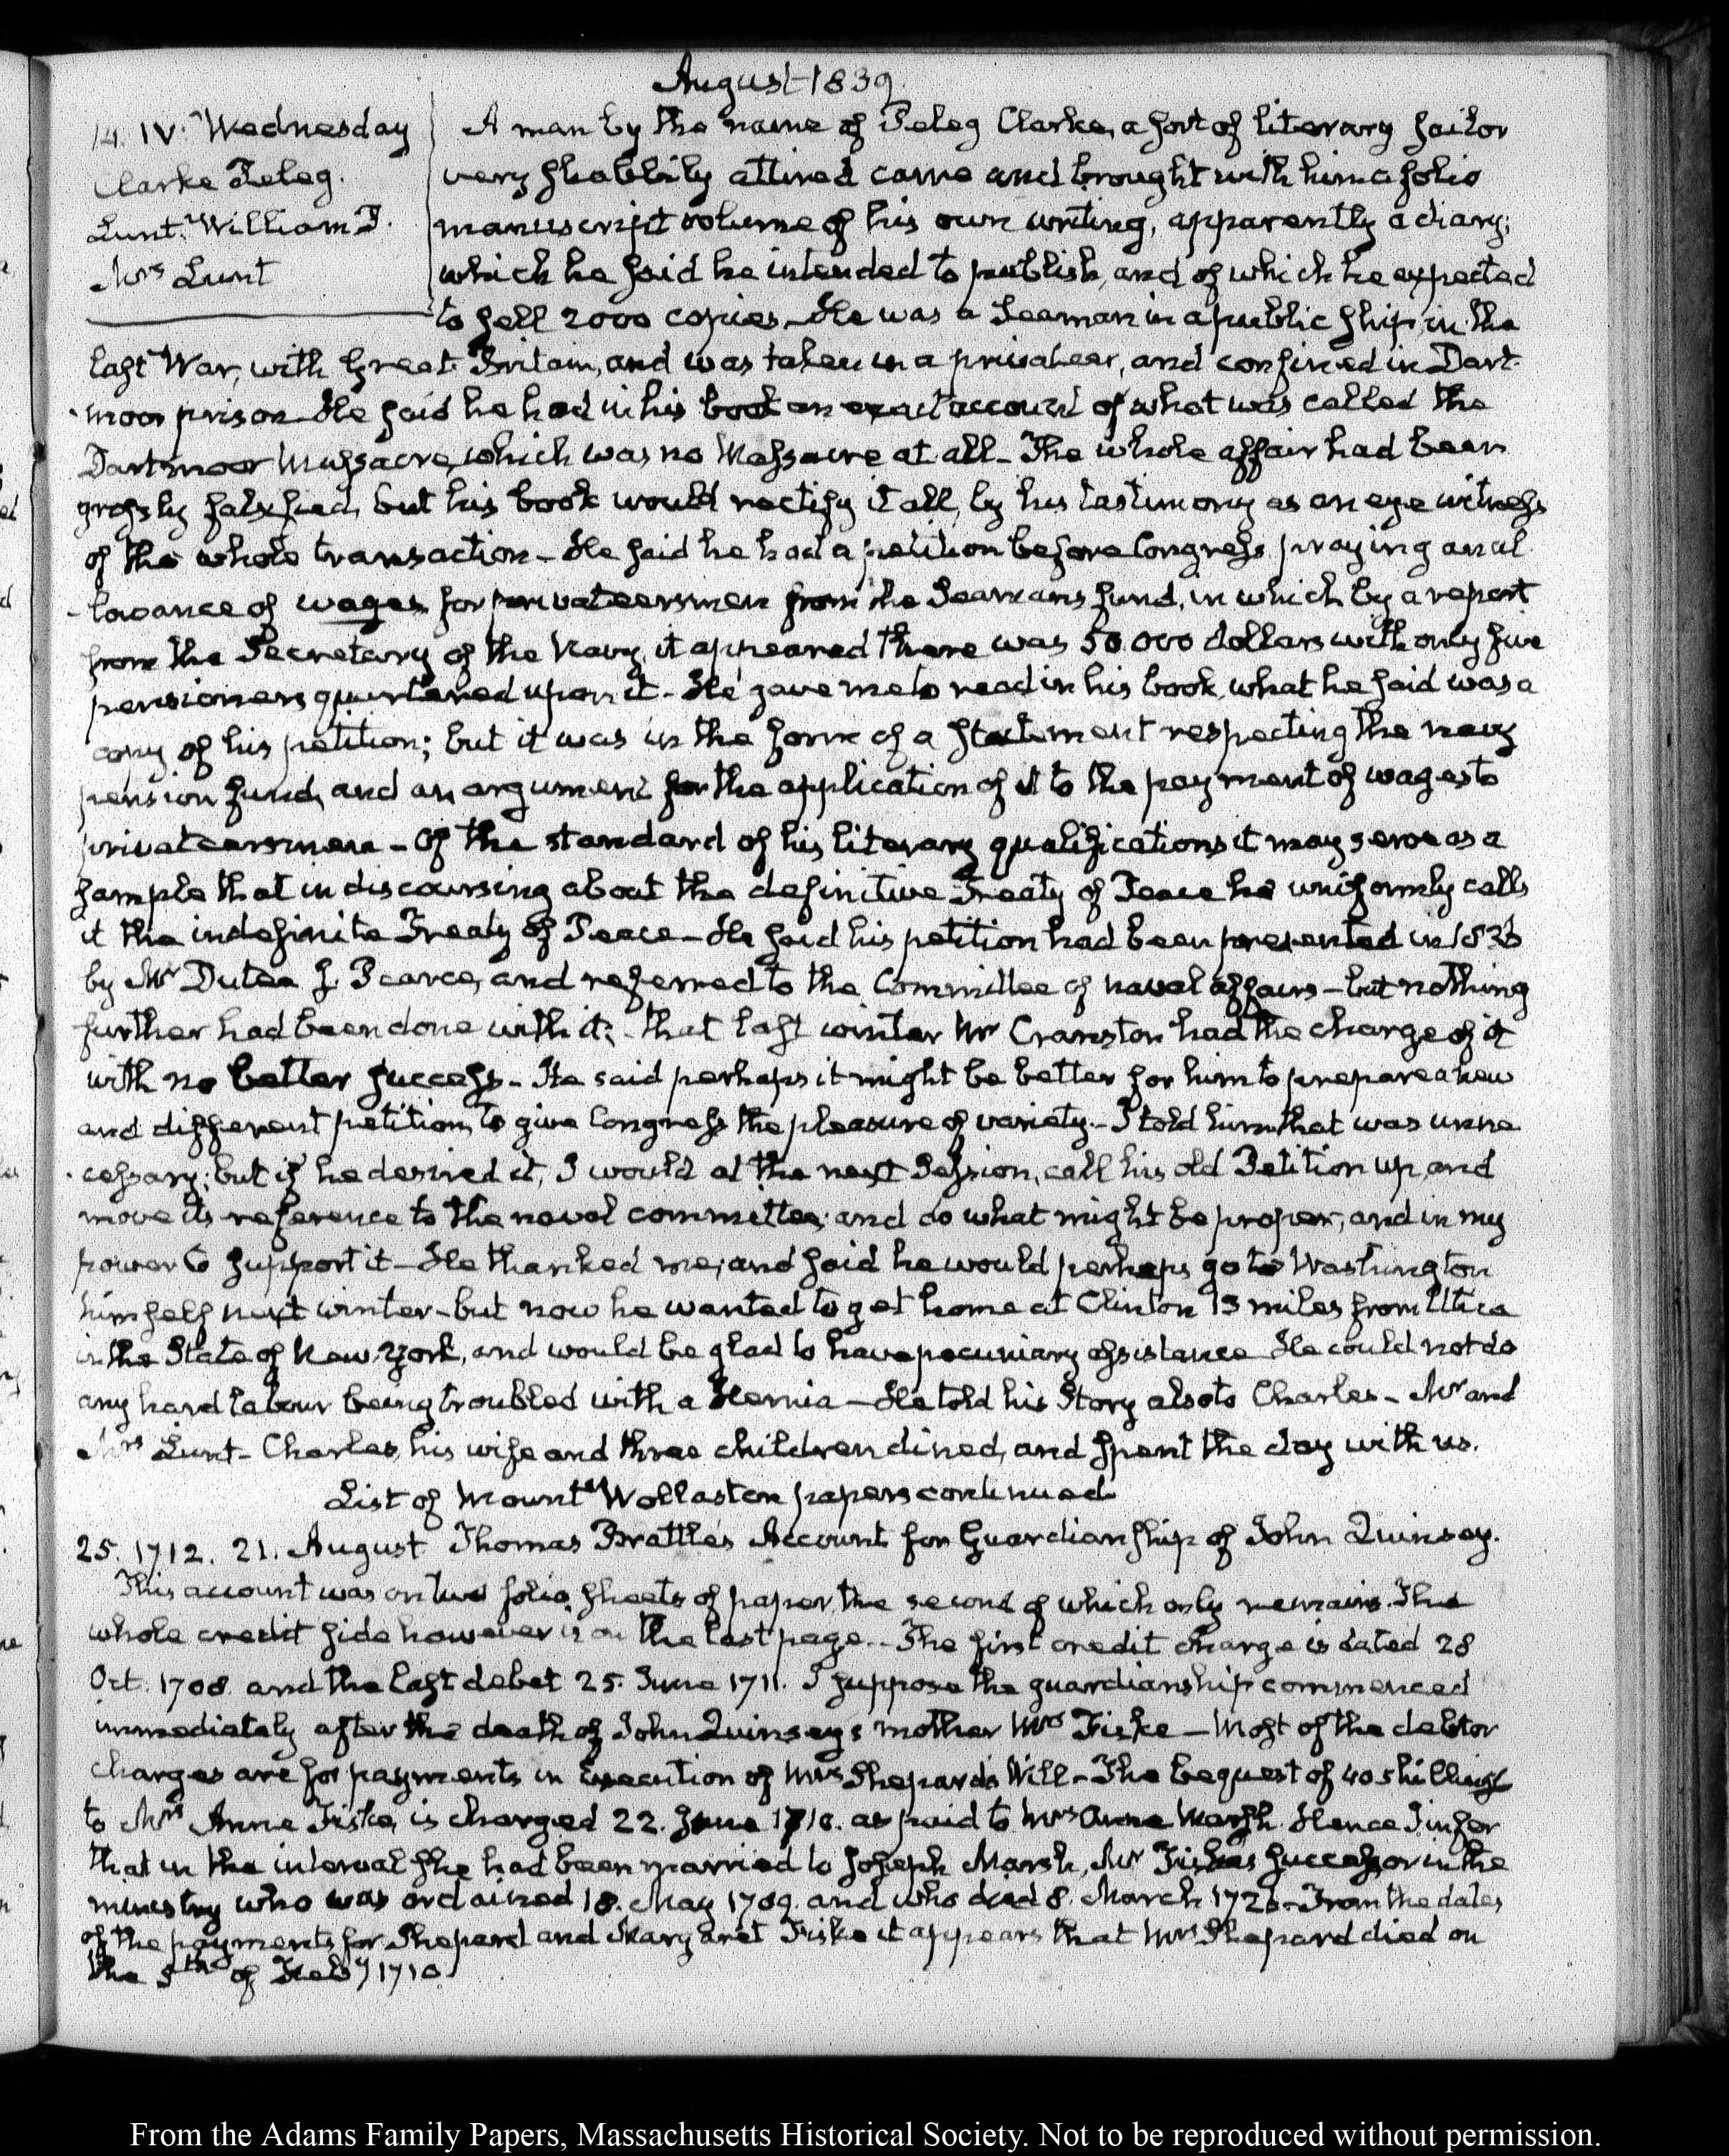 August 1839.
14. IV. Wednesday
Clarke Peleg.
Lunt. William P.
Mrs Lunt
A man by the name of Peleg Clarke, a sort of literary sailor
very shabbily attired came and brought with him a folio
manuscript volume of his own writing, apparently a diary;
which he said he intended to publish, and of which he expected
to sell 2000 copies. He was a Seaman in a public ship, in the
last War, with Great Britain, and was taken in a privateer, and confined in Dart-
moor prison. He said he had in his book an exact account of what was called the
Dartmoor Massacre, which was no Massacre at all. The whole affair had been
grossly falsified, but his book would rectify it all, by his testimony as an eye witness
of the whole transaction. He said he had a petition before Congress, praying an al-
lowance of wages for privateersmen from the Seamans fund, in which by a report
from the Secretary of the Navy, it appeared there was 50.000 dollars with only five
pensioners quartered upon it. He gave me to read in his book, what he said was a
copy of his petition; but it was in the form of a statement respecting the navy
pension fund, and an argument for the application of it to the payment of wages to
privateersmen. Of the standard of his literary qualifications it may serve as a
sample that in discoursing about the definitive Treaty of Peace he uniformly calls
it the indefinite Treaty of Peace. He said his petition had been presented in
by Mr Dutee J. Pearce, and referred to the Committee of naval affairs—but nothing
further had been done with it; that last winter Mr Cranston had the charge of it
with no better success. He said perhaps it might be better for him to prepare a new
and different petition, to give Congress the pleasure of variety. I told him that was unne-
cessary; but if he desired it, I would at the next Session, call his old Petition up, and
move its reference to the naval committee; and do what might be proper, and in my
power to support it. He thanked me; and said he would perhaps go to Washington
himself next winter—but now he wanted to get home at Clinton 13 miles from Utica
in the State of New York, and would be glad to have pecuniary assistance He could not do
any hard labour being troubled with a Hernia—He told his Story also to Charles. Mr and
Mrs Lunt. Charles, his wife and three children dined, and spent the day with us.
List of Mount Wollaston papers continued
25. 1712. 21. August Thomas Brattle's Account for Guardianship of John Quinsey.
This account was on two folio sheets of paper, the second of which only remains. The
whole credit side however is on the last page. The first credit charge is dated 28
Oct. 1708. and the last debet 25. June 1711. I suppose the guardianship commenced
immediately after the death of John Quinsey's mother Mrs Fiske—Most of the debtor
charges are for payments in Execution of Mrs Shepard's Will. The bequest of 40 shillings
to Mrs Anne Fiske, is charged 22. June 1710. as paid to Mrs Anne Marsh. Hence I infer
that in the interval she had been married to Joseph Marsh, Mr Fiske's successor in the
ministry who was ordained 18. May 1709. and who died 8. March From the dates
of the payments for Shepard and Margaret Fiske it appears that Mrs Shepard died on
the 5th of Feby 1710.
From the Adams Family Papers, Massachusetts Historical Society. Not to be reproduced without permission.